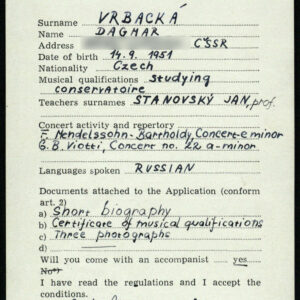 Surname VRBACKÁ
Name DAGMAR
Address ČSSR
Date of birth 14.9.1951
Nationality Czech
Musical qualifications studying
conservatoire
Teachers surnames STANOVSKÝ JAN, prof.
Concert activity and repertory
F. Mendelssohn-Bartholdy, Concert-e minor
G.B. Viotti, Concert no. 22 a-minor
Languages spoken RUSSIAN
Documents attached to the Application (conform
art. 2)
a) Short biography
b) Certificate of musical qualifications
c) Three photographs
d)
Will you come with an accompanist yes
No*)
I have read the regulations and I accept the
conditions.